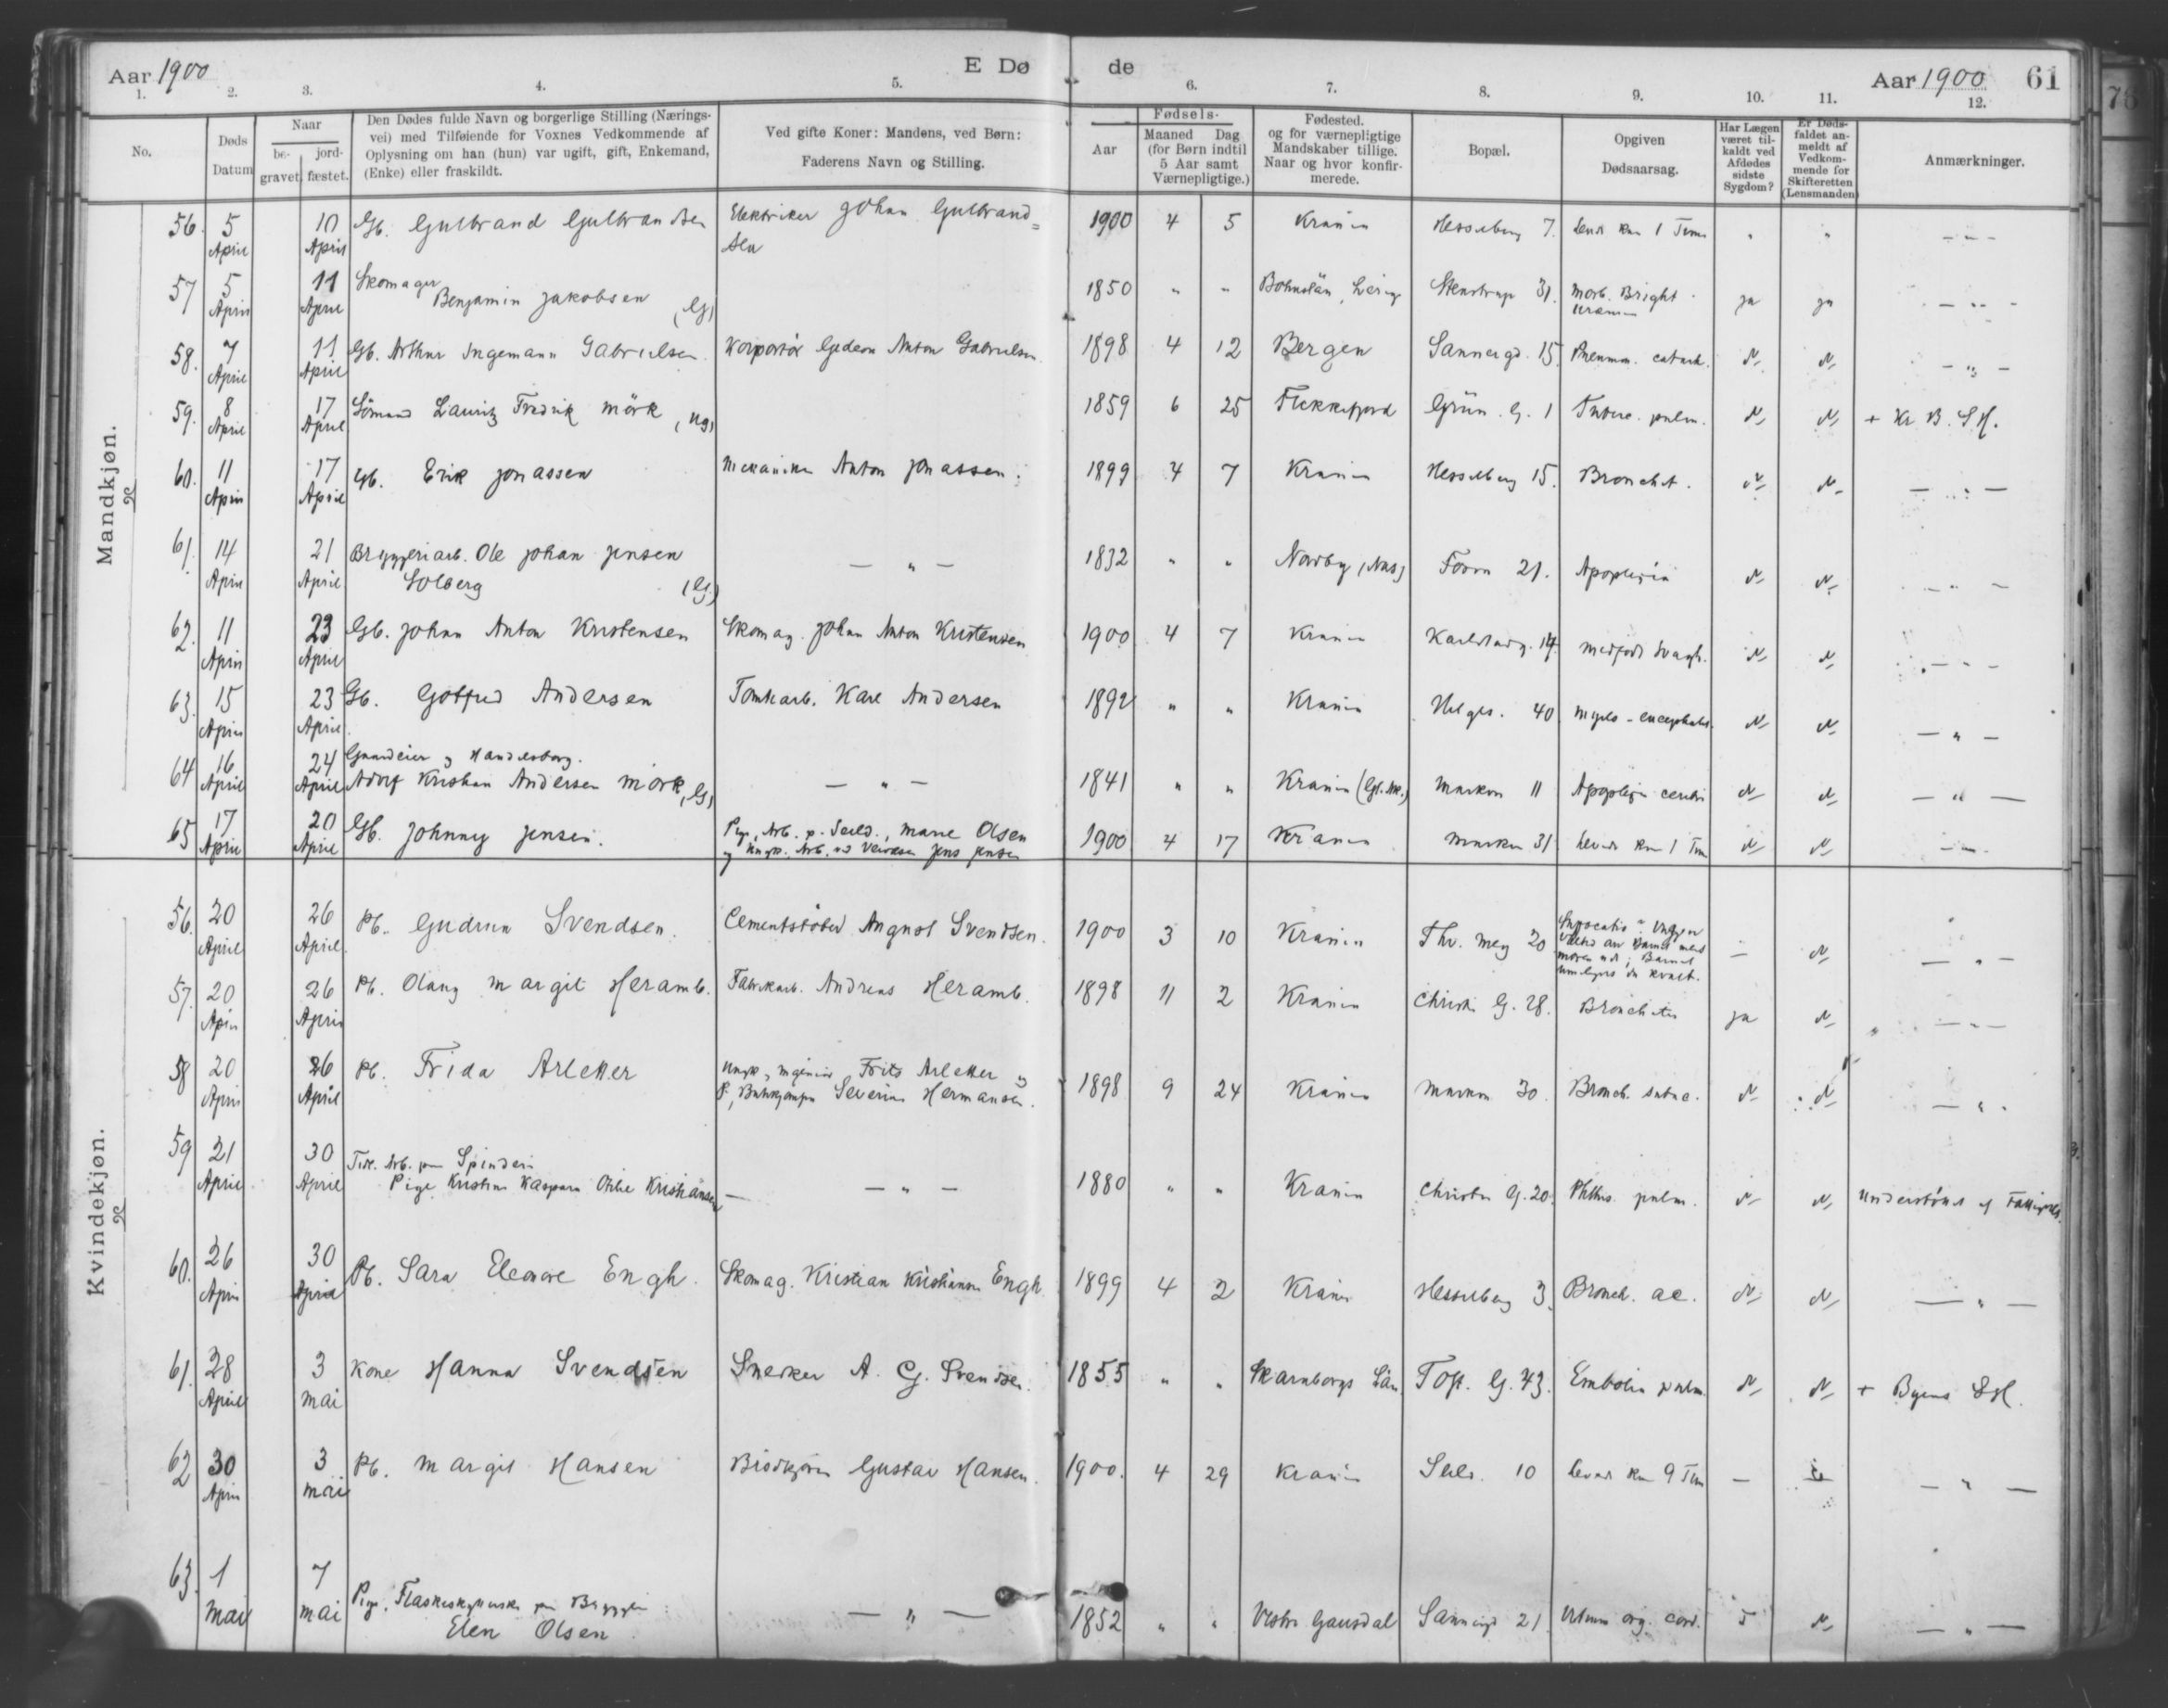 Aar 1900
E Dø de
Aar 1900 61
1. 2. 3. 4. 5. 6. 7. 8. 9. 10. 11. 12.
No.
Døds Datum
Naar
be-gravet.
jord-fæstet.
Den Dødes fulde Navn og borgerlige Stilling (Nærings-
vei) med Tilføiende for Voxnes Vedkommende af
Oplysning om han (hun) var ugift, gift, Enkemand,
(Enke) eller fraskildt.
Ved gifte Koner: Mandens, ved Børn:
Faderens Navn og Stilling.
Fødsels-
Aar
Maaned Dag
(for Børn indtil
5 Aar samt
Værnepligtige.)
Fødested.
og for værnepligtige
Mandskaber tillige.
Naar og hvor konfir-
merede.
Bopæl.
Opgiven
Dødsaarsag.
Har Lægen
været til-
kaldt ved
Afdødes
sidste
Sygdom?
Er Døds-
faldet an-
meldt af
Vedkom-
mende for
Skifteretten
(Lensmanden)
Anmærkninger.
Mandkjøn.
56. 5 April 10 April Gb. Gulbrand Gulbrandsen Elektriker Johan Gulbrand=
sen 1900 4 5 Krania Hesselberg 7. levede kun 1 Time " " — " —
57 5 April 11 April Skomager
Benjamin Jakobsen (G) 1850 " " Bohuslän, Sverige Stenstrup 31. Morb. Bright. ja ja — " —
58. 7 April 11 April Gb. Arthur Ingemann Gabrielsen. Kolportør Gideon Anton Gabrielsen 1898 4 12 Bergen Sannergd. 15. Pneum. catarrh. N N — " —
59. 8 April 17 April Sömand Lauritz Fredrik Mörk (ug) 1859 6 25 Flekkefjord Grün. G. 1 Tuberc. pulm. N N + Kr B. S H.
60. 11 April 17 April Gb. Erik Jonassen Mekaniker Anton Jonassen. 1899 4 7 Krania Hesselberg 15. Bronchit. N N — " —
61. 14 April 21 April Bryggeriarb. Ole Johan Jensen
Solberg (G.) — " — 1832 " " Nordby (Aas) Foss 21. Apoplexia N N — " —
62. 11 April 23 April Gb. Johan Anton Kristensen Skomag. Johan Anton Kristensen 1900 4 7 Krania Karlstadg. 14. Medfödt Svagh. N N — " —
63. 15 April 23 April Gb. Gotfred Andersen Tomtearb. Karl Andersen 1892 " " Krania Helges. 40 Myelo-encephalit. N N — " —
64 16 April 24 April Gaardeier og Handelsborg.
Adolf Kristian Andersen Mörk (G) — " — 1841 " " Krania (Gl. Ak.) Markvn 11 Apoplexia cerebri N N — " —
65 17 April 20 April Gb. Johnny Jensen. Pige, Arb. p. Seild., Marie Olsen
og Ungk. Arb. Jens Jensen 1900 4 17 Krania Markvn 31 levede kun 1 Tim N N — " —
Kvindekjøn.
56. 20 April 26 April Pb. Gudrun Svendsen. Cementstöber August Svendsen. 1900 3 10 Krania Thv. Mey 20 Suffocatio — N — " —
57. 20 April 26 April Pb. Olaug Margit Heramb. Fabrikarb. Andreas Heramb. 1898 11 2 Krania Christi G. 28. Bronchitis ja N — " —
58 20 April 26 April Pb. Frida Arletter Ungk., Ingeniör Frits Arletter og
P., Severine Hermansen. 1898 9 24 Krania Markvn 30. Bronch. subac. N N — " —
59 21 April 30 April Tidl. Arb. paa Spinderi
Pige Kristine Kaspara Othilie Kristiansen — " — 1880 " " Krania Christi G. 20. Phthis. pulm. N N Understöttet af Fattigv.
60. 26 April 30 April Pb. Sara Eleonore Engh. Skomag. Kristian Kristiansen Engh 1899 4 2 Krania Hesselberg 3. Bronch. ac. N N — " —
61. 28 April 3 Mai Kone Hanna Svendsen Snedker A. G. Svendsen. 1855 " " Skaraborgs Län. Toft. G. 43. Embolia pulm. N N + Byens SH.
62 30 April 3 Mai Pb. Margit Hansen Brödkjörer Gustav Hansen. 1900. 4 29 Krania Seild. 10 levede kun 9 Tim — — " —
63. 1 Mai 7 Mai Pige, Flaskeskyllerske paa Bryggeri
Elen Olsen. — " — 1852 " " Vestre Gausdal Sannergd 21 Vitium org. cord. J N — " —